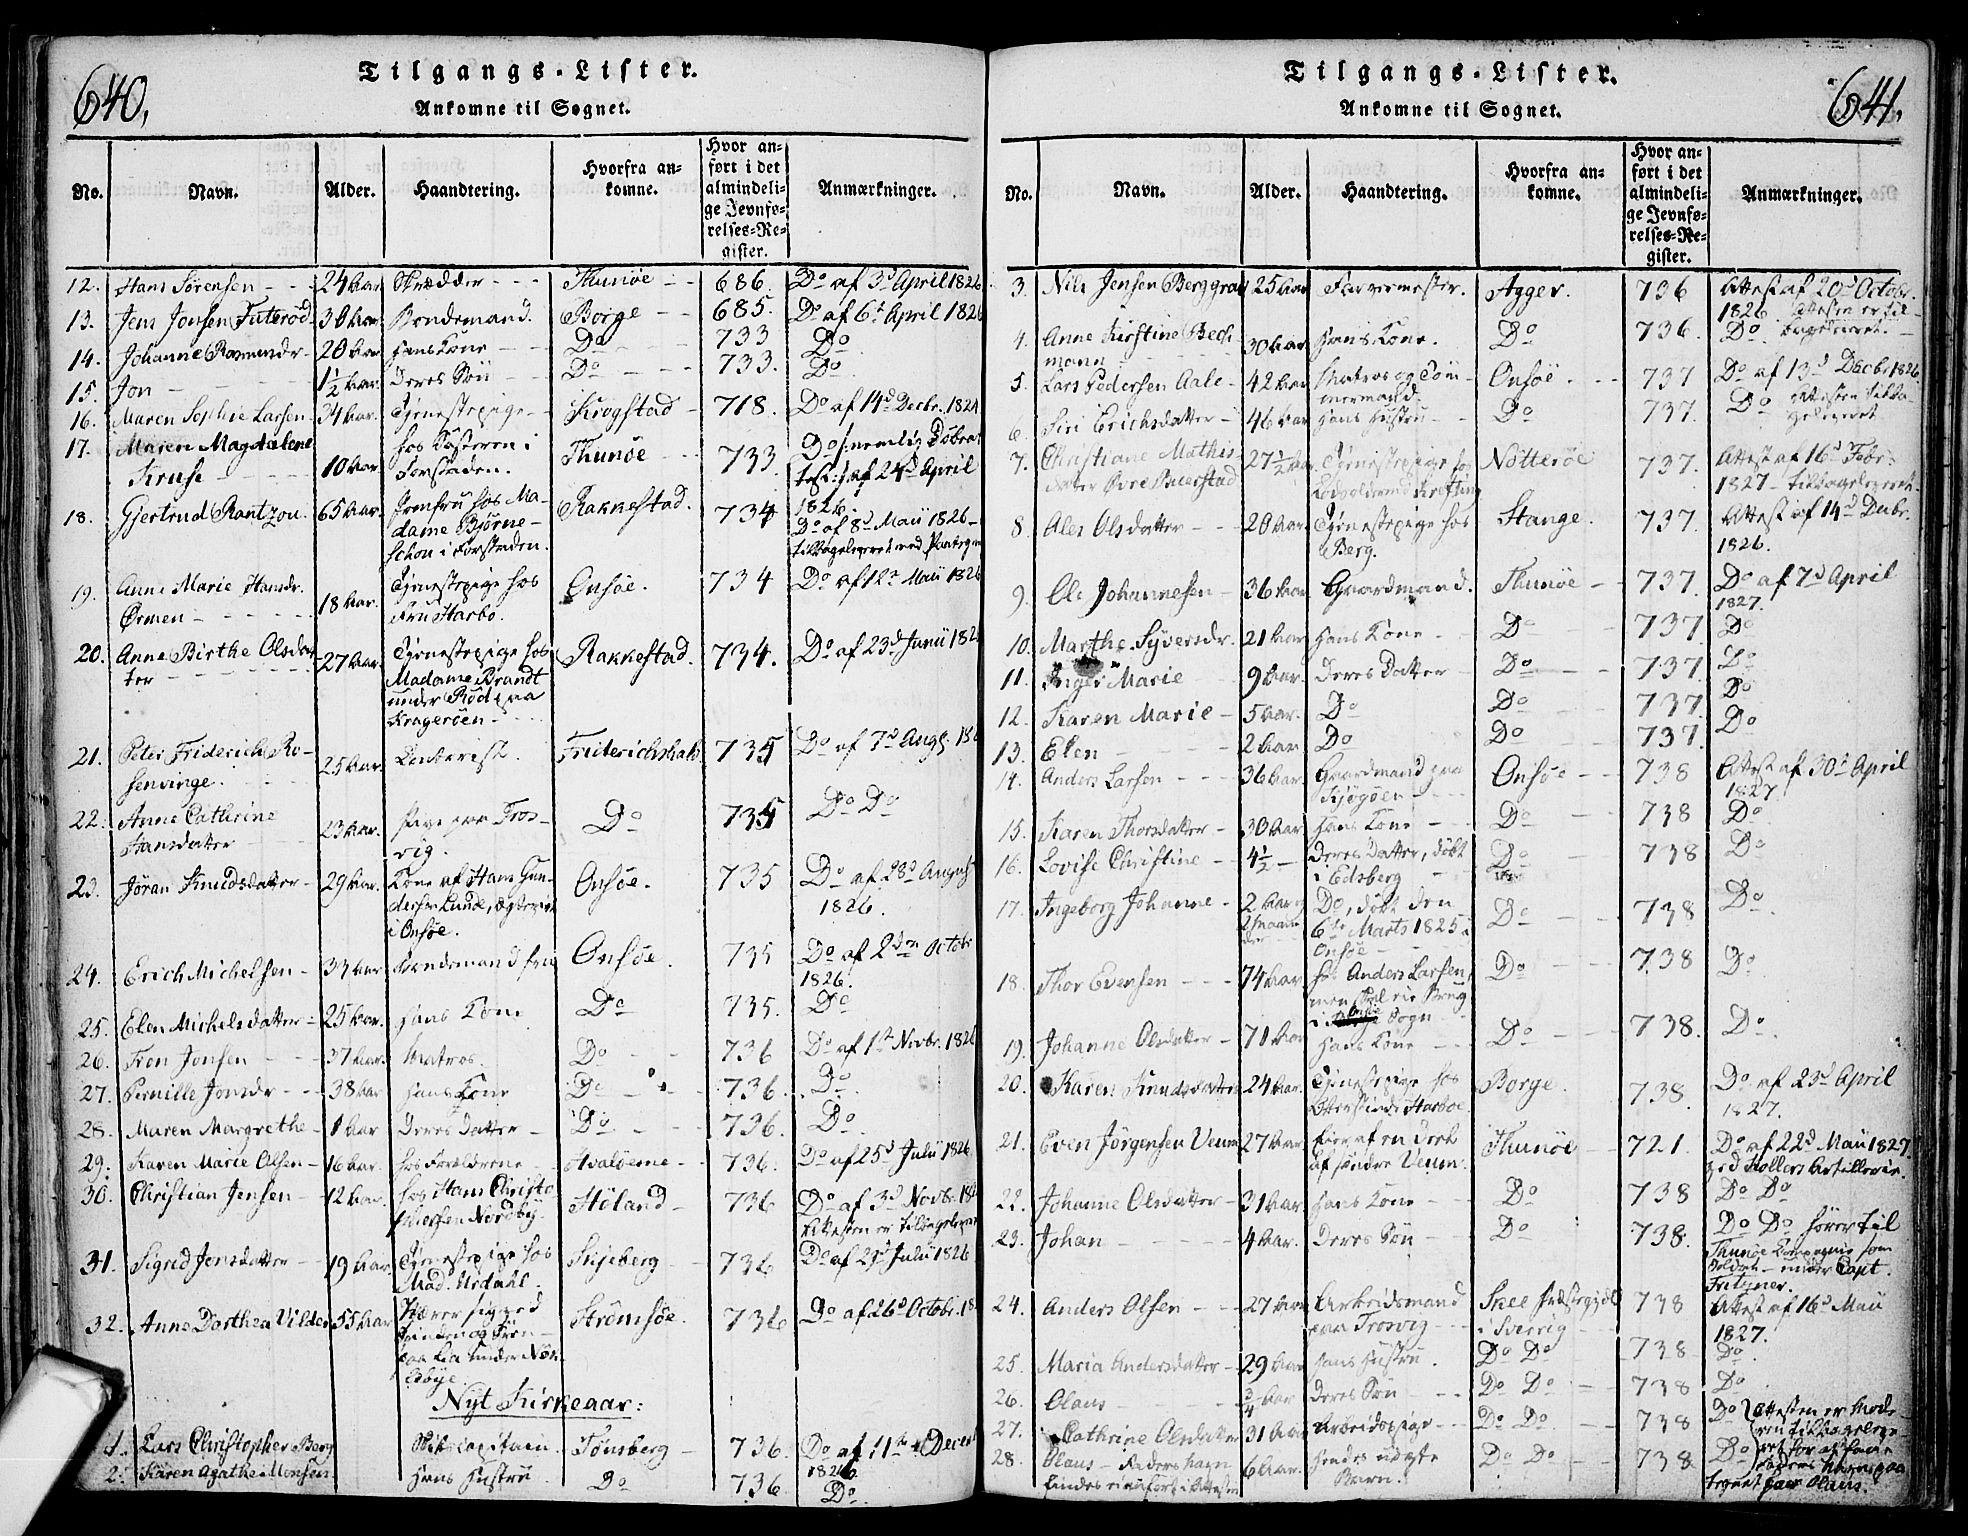 640,
Tilgangs-Lister.
Ankomne til Sognet.
No. Navn. Alder. Haandtering. Hvorfra ankomne. Hvor anført i det almindelige Jevnførelses-Register. Anmærkninger.
12. Hans Sörensen - - 24 Aar Skrædder - - - Thunöe - - 686. Do af 3d April 1826
13. Jens Jonsen Futeröd 30 Aar Bondemand. Borge - - 685. Do af 6t April 1826
14. Johanne Rasmusdr - 20 Aar hans Kone - - Do - - - 733 Do
15. Jon - - - 1½ Aar. Deres Sön - - Do - - - 733. Do
16. Maren Sophie Larsen - 34 Aar. Tjenestepige - Krogstad - 718. Do af 14d Decbr. 1824
17. Maren Magdalene
Kruse - - - 10 Aar hos Söstren i
Forstaden. Thunöe - - 733 Do (: nemlig Döbeat-
test :) af 24d April
1826.
18. Gjertrud Rantzou. 65 Aar. Jomfru hos Ma-
dame Björne-
schou i Forstaden. Rakkestad. 734 Do af 8d Maii 1826 -
tilbageleveret med Paategn
19. Anne Marie Hansdr.
Örmen - - - 18 Aar. Tjenestepige hos
Fru Harbo. Onsöe. 734 Do af 12t Maii 1826
20. Anne Birthe Olsdat-
ter - - - 27 Aar. Tjenestepige hos
Madame Brandt
under Röd paa
Krageröen - - Rakkestad. 734. Do af 23d Junii 182
21. Peter Friderich Ro-
senvinge. 25 Aar. Contorist. Friderichshald. 735 Do af 7d Aug. 18
22. Anne Cathrine
Hansdatter 23 Aar. Pige paa Tros-
vig. Do 735 Do Do
23. Jöran Knudsdatter - 29 Aar. Kone af Hans Gun-
dersen Lunde,
i Onsöe. Onsöe. 735 Do af 28d August
1826.
24. Erich Michelsen - 33 Aar Bondemand fra Onsöe. 735 Do af 2den Octobr
1826.
25. Elen Michelsdatter - 25 Aar. hans Kone Do 735. Do
26. Tron Jonsen - - 37 Aar. Matros. Do - - 736 Do af 1st Novbr. 1826
27. Pernille Jonsdr - - 38 Aar hans Kone Do - - 736. Do
28. Maren Margrethe - 1 Aar Deres Datter - Do - - - 736. Do
29. Karen Marie Olsen - 16 Aar. hos Forældrene Hvalöerne - 736. Do af 25d Julii 1826
30. Christian Jensen - 12 Aar. hos Hans Christo-
phersen Nordby. Höland - 736 Do af 3d Novbr. 182
Attesten er tilbageleveret
31. Sigrid Jensdatter - 19 Aar. Tjenestepige hos
Mad. Urdahl. Skjeberg - - 736 Do af 21d Julii 1826
32. Anne Dorthea Vilder 55 Aar Nærer sig ved
under Nöe
Strömsöe. 736 Do af 26d Octobr. 18
Nyt Kirkeaar:
1. Lars Christopher Berg Skibscapitain. Tönsberg - 736. Do af 11te Decembr
1826
2. Karen Agathe Monsen. Hans Hustru Do 736. Do.
641.
Tilgangs-Lister.
Ankomne til Sognet.
No. Navn. Alder. Haandtering. Hvorfra ankomne. Hvor anført i det almindelige Jevnførelses-Register. Anmærkninger.
3. Nils Jensen Berggrav 25 Aar Farvermester. Agger. 736 Attest af 20d Octobr.
1826. Attesten er til-
bageleveret.
4. Anne Kirstine Bech-
mann - - - 30 Aar hans Kone. Do 736. Do
5. Lars Pedersen Aale - 42 Aar Matros og Töm-
mermand. Onsöe. - - 737 Do af 13d Decbr 1826
6. Siri Erichsdatter - 46 Aar hans Hustru Do 737. Do Attesten tilba-
geleveret
7. Christiane Mathis-
datter Övre Buerstad 27½ Aar Tjenestepige hos
Krefting Nötteröe 737. Attest af 16d Febr.
1827 - tilbageleveret.
8. Ales Olsdatter - - 20 Aar Tjenestepige hos
Berg. Stange. 737. Attest af 14d Decbr.
1826.
9. Ole Johannesen - 36 Aar Gaardmand. Thunöe - - 737. Do af 7d April
1827.
10. Marthe Syversdr. 21 Aar hans Kone - Do - - 737 Do
11. Inger Marie 9 Aar. Deres Datter - Do - - 737. Do
12. Karen Marie - 5 Aar. Do Do - - 737. Do
13. Elen - - - 2 Aar. Do Do - - 737. Do
14. Anders Larsen - - - 36 Aar Gaardmand paa
Kjögöen - - Onsöe - - 738 Attest af 30t April
1827
15. Karen Thorsdatter - 30 Aar hans Kone - - Do - - - 738 Do
16. Lovise Christine - - 4½ - Deres Datter, döbt
i Edsberg - - Do 738 Do
17. Ingeborg Johanne - 2 Aar
2 Maane-
der Do, döbt den
6te Marts 1825 i
Onsöe - - Do - - 738 Do
18. Thor Evensen - - - 74 Aar. hos Anders Larsen,
men skal eie Brug
i Onsöe Sogn Do - - 738 Do
19. Johanne Olsdatter - 71 Aar hans Kone - - - Do - - 738. Do
20. Karen Knudsdatter 24 Aar. Tjenestepige hos
Harboe. Borge. 738. Do af 23d April
1827.
21. Even Jörgensen Veum 27 Aar. Eier af en Deel
af söndre Veum. Thunöe - 721. Do af 22d Maii 1827.
ved Artillerie.
22. Johanne Olsdatter - 31 Aar hans Kone - - Do 738 Do Do
23. Johan - - - 4 Aar. Deres Sön - - Do 738. Do Do hörer til
Thunöe Compagnie som
Soldat - under Capt.
24. Anders Olsen - - 27 Aar Arbeidsmand
paa Trosvig - - Skee Præstegjeld
i Sverrig - - 738 Attest af 16d Maii
1827.
25. Maria Andersdatter - 29 Aar hans Hustru. Do Do - - 738 Do
26. Olaus - - - ¾ Aar Deres Sön - - Do Do - - 738 Do
27. Cathrine Olsdatter 31 Aar Arbeidspige - Do Do - - 738 Do Attesten er Mode-
ren tilbageleve-
ret for at faae
28. Olaus - Faderens Navn
findes ei anfört i Attesten 6 Aar. hendes uægte
Barn. Do Do - - 738 Do Faderens Navn paa-
tegnet for Olaus.